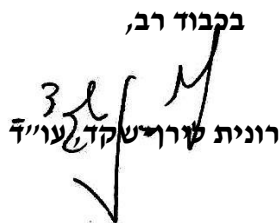 בכבוד רב,
רונית פירר-שקד, עו"ד